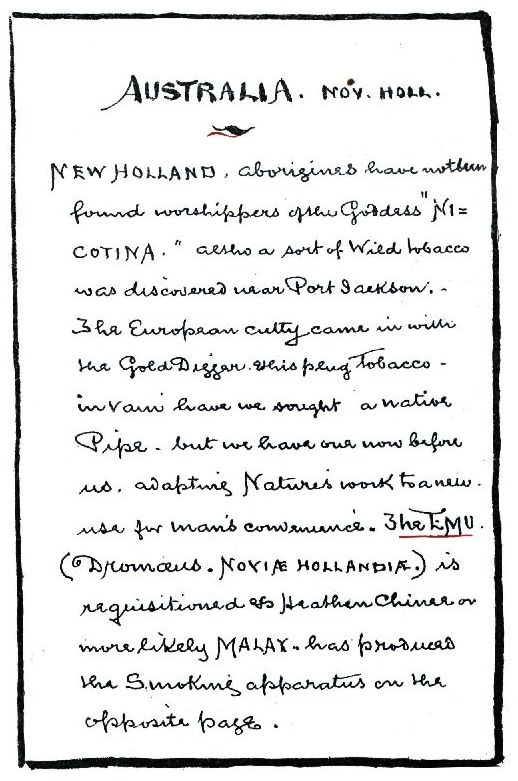 AUSTRALIA. NOV. HOLL.
NEW HOLLAND, aborigines have not been
found worshippers of the Goddess "NI=
COTINA." altho a sort of Wild tobacco
was discovered near Port Jackson. -
The European cutty came in with
the Gold Digger. & his plug Tobacco -
in vain have we sought a native
Pipe - but we have one now before
us, adapting Nature's work to a new
use for man's convenience. The EMU.
(Dromæus. NOVIÆ HOLLANDIÆ.) is
requisitioned & Heathen Chinee or
more likely MALAY. has produced
the Smoking apparatus on the
opposite page.